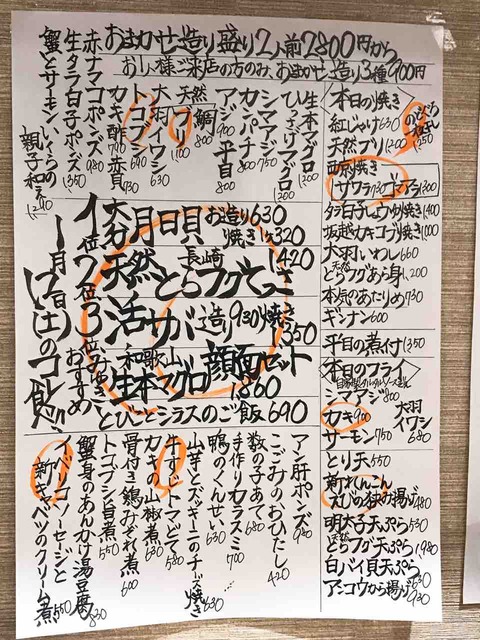 おまかせ造り盛り2人前2800円から
お1人様ご来店の方のみ、おまかせ造り3種900円
生本マグロ 1200
ひっさげマグロ 1200
カンパチ 750
シマアジ 800
アジ 900
平目 800
天然
鯛 800
ブリ 1,100
大羽イワシ 630
トコブシ 690
カキ酢 790
赤貝 930
赤ナマコポンズ 980
生タラ白子ポンズ 1,350
蟹とサーモン、いくらの親子和え 1,240
1位 大分 月日貝 お造り630
焼き 320
2位 天然 長崎 とらフグてっさ 1420
3位 活サバ 造り930 焼き 1350
みゆきおすすめ
和歌山 生本マグロ 顔面セット 1,860
とびことシラスのご飯 690
1月17日(土)のコレ食べ!!
アン肝ポンズ 980
こごみのおひたし 420
数の子あて 680
手作りカラスミ 700
鴨のくんせい 630
山芋とズッキーニのチーズ焼き 630
牛すじトマトどて 580
カキの山椒煮 630
骨付き鶏みぞれ煮 600
トコブシ旨煮 550
蟹身のあんかけ湯豆腐 830
イベリコソーセージと
新キャベツのクリーム煮 550
本日の焼き
紅じゃけ 630
天然ブリ 1200
西京焼き
サワラ 730 ゴマアジ 1300
タラ白子しょうゆ焼き 1,400
坂越カキコブ焼 1,000
大羽いわし 660
天然とらフグあら身 1,200
本気のあたりめ 730
ギンナン 600
平目の煮付 1,350
本日のフライ
自家製タルタルソース
シマアジ 800
カキ 900
大羽イワシ 680
サーモン 750
とり天 550
新れんこん
えびの挟み揚げ 480
明太子天ぷら 530
天然とらフグ天ぷら 1,980
白バイ貝天ぷら 630
アンコウから揚げ 930